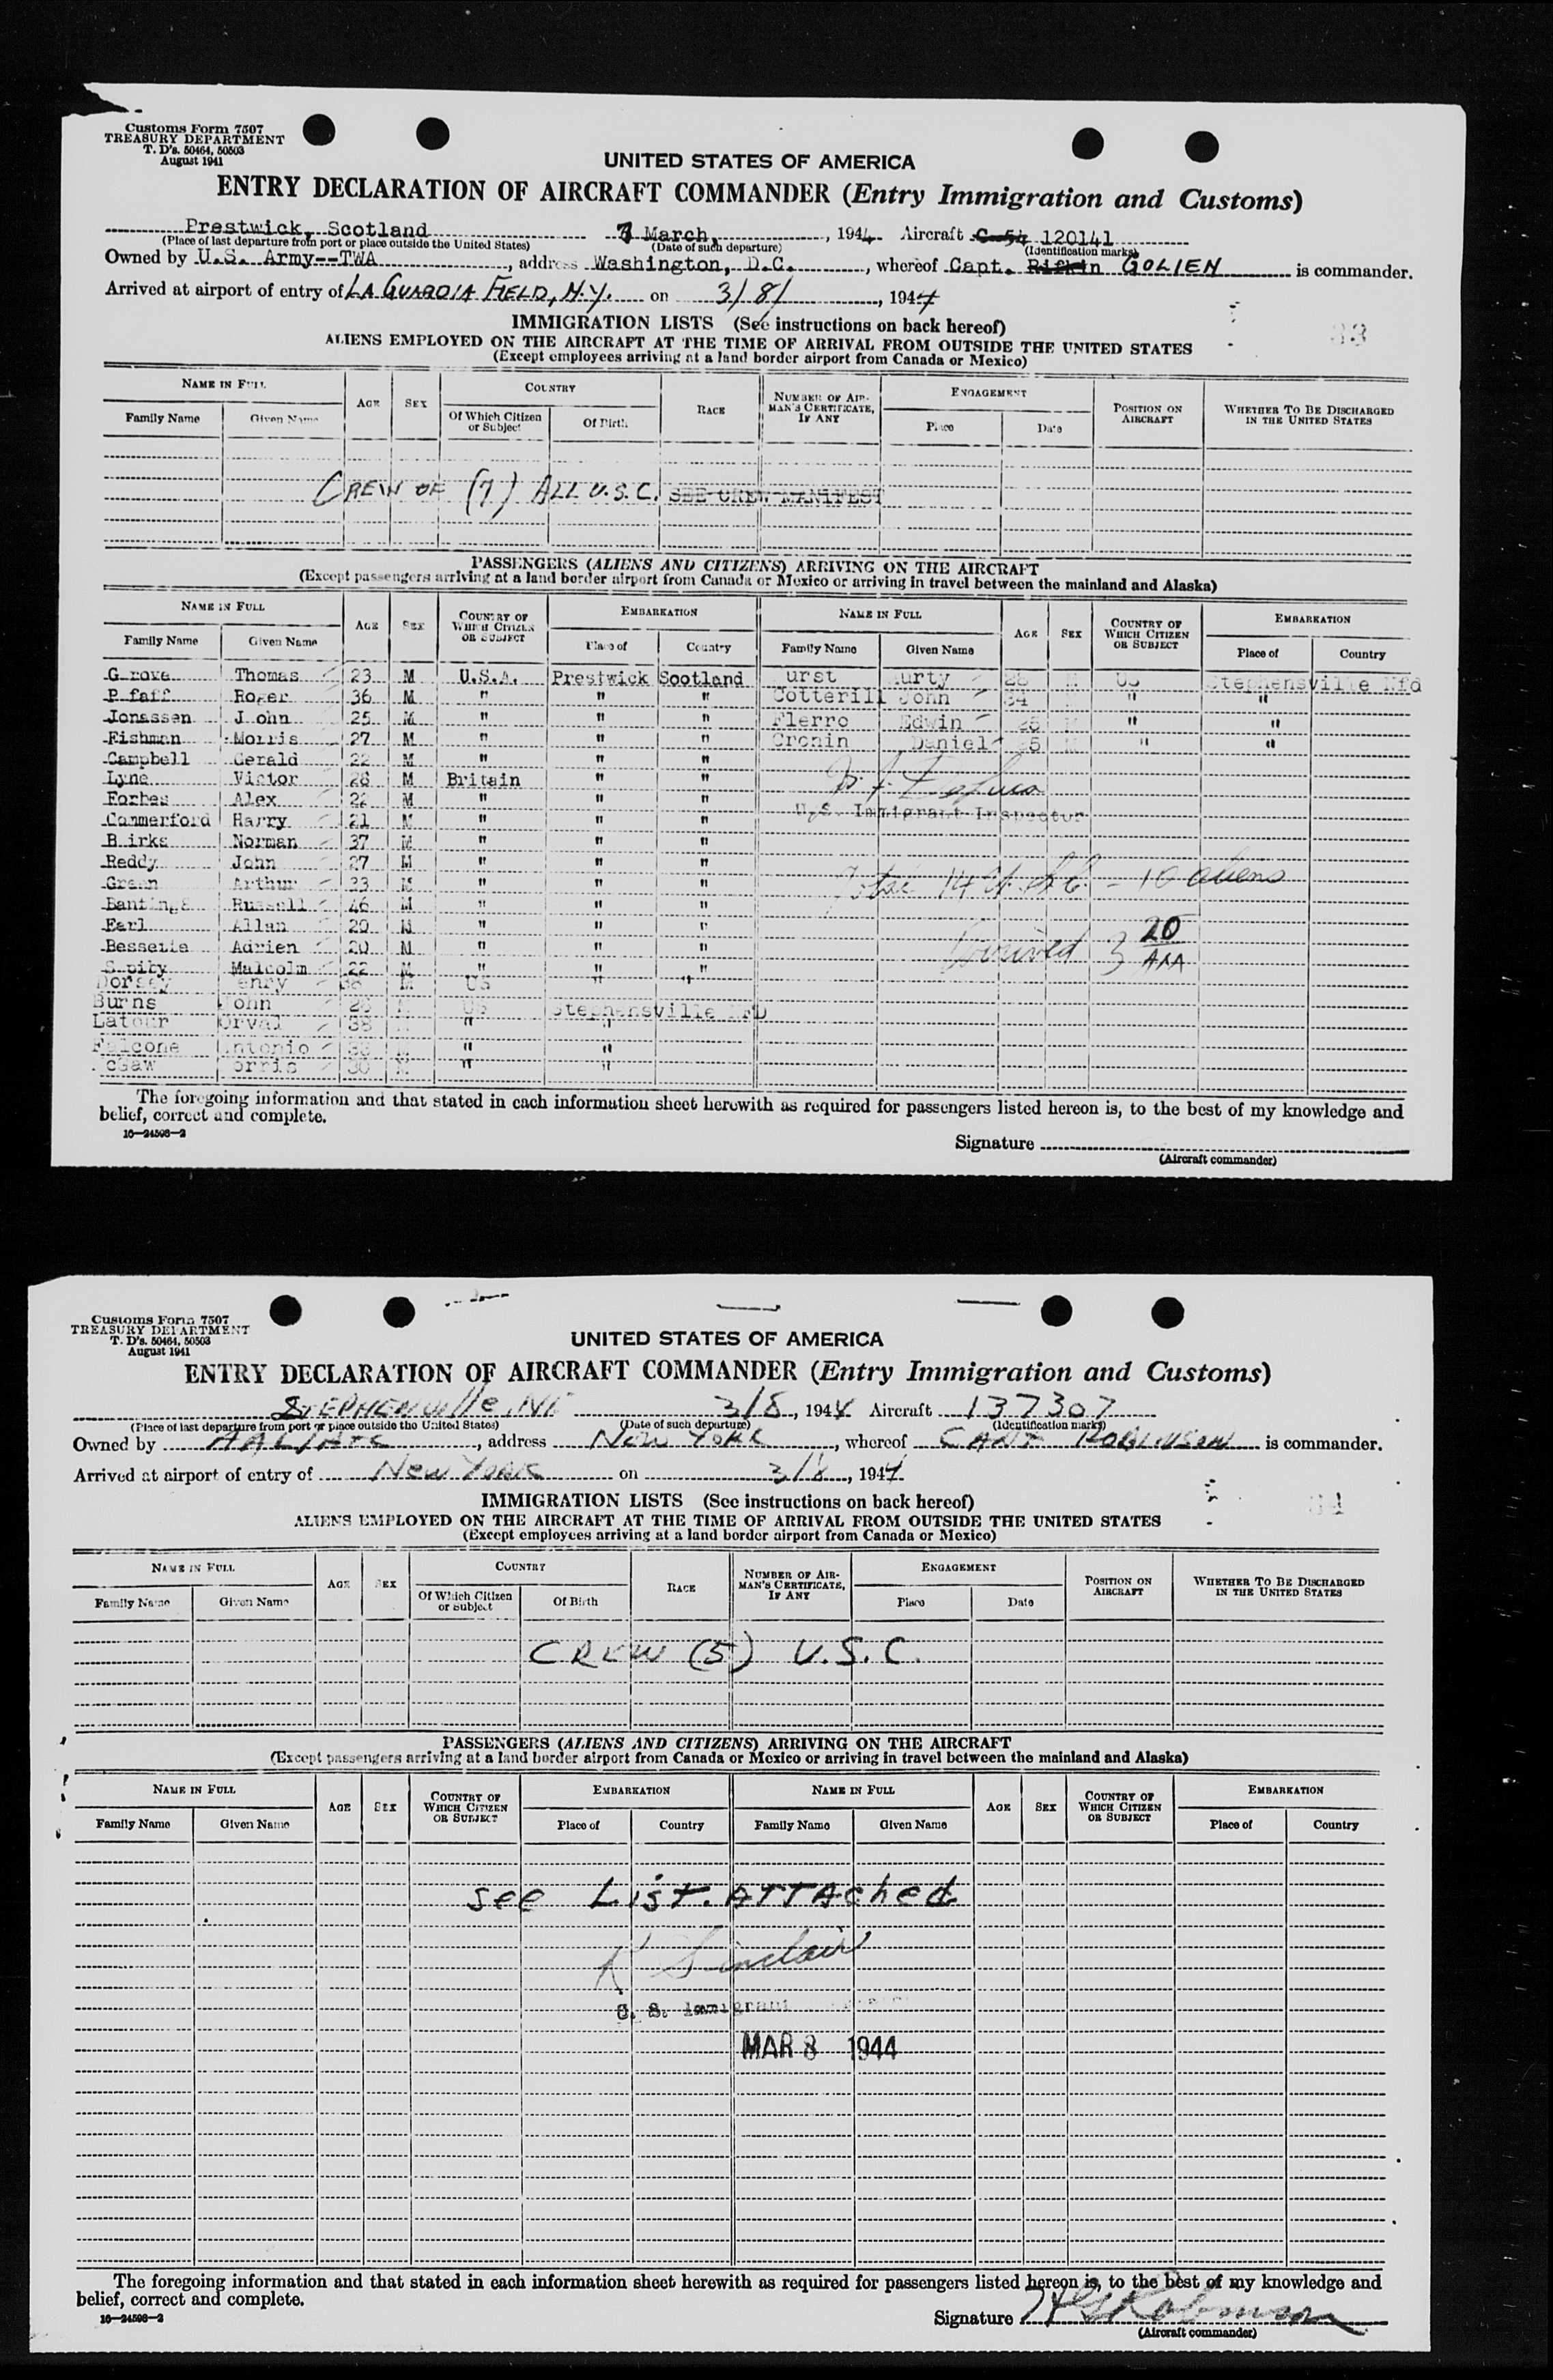 Customs Form 7507
TREASURY DEPARTMENT
T. D's. 50464, 50503
August 1941
UNITED STATES OF AMERICA
ENTRY DECLARATION OF AIRCRAFT COMMANDER (Entry Immigration and Customs)
Prestwick, Scotland 7 March, 1944 Aircraft C-54 120141
(Place of last departure from port or place outside the United States) (Date of such departure) (Identification marks)
Owned by U.S. Army--TWA, address Washington, D.C., whereof Capt. Rifkin GOLIEN is commander.
Arrived at airport of entry of LA GUARDIA FIELD, N.Y. on 3/8/, 1944
IMMIGRATION LISTS (See instructions on back hereof)
33
ALIENS EMPLOYED ON THE AIRCRAFT AT THE TIME OF ARRIVAL FROM OUTSIDE THE UNITED STATES
(Except employees arriving at a land border airport from Canada or Mexico)
NAME IN FULL AGE SEX COUNTRY RACE NUMBER OF AIRMAN'S CERTIFICATE, IF ANY ENGAGEMENT POSITION ON AIRCRAFT WHETHER TO BE DISCHARGED IN THE UNITED STATES
Family Name Given Name Of Which Citizen or Subject Of Birth Place Date
CREW OF (7) ALL U.S.C. SEE CREW MANIFEST
PASSENGERS (ALIENS AND CITIZENS) ARRIVING ON THE AIRCRAFT
(Except passengers arriving at a land border airport from Canada or Mexico or arriving in travel between the mainland and Alaska)
NAME IN FULL AGE SEX COUNTRY OF WHICH CITIZEN OR SUBJECT EMBARKATION NAME IN FULL AGE SEX COUNTRY OF WHICH CITIZEN OR SUBJECT EMBARKATION
Family Name Given Name Place of Country Family Name Given Name Place of Country
Grove Thomas 23 M U.S.A. Prestwick Scotland urst urty 28 M US Stephensville Nfd
Pfaff Roger 36 M " " " Cotterill John 34 " "
Jonassen John 25 M " " " Flerro Edwin 28 " "
Fishman Morris 27 M " " " Cronin Daniel 25 " "
Campbell Gerald 22 M " " "
Lyne Victor 28 M Britain " "
Forbes Alex 22 M " " "
U.S. Immigrant Inspector
Commerford Harry 21 M " " "
Birks Norman 37 M " " "
Reddy John 27 M " " "
Green Arthur 33 M " " " Total 14 U.S.C. - 10 aliens
Banting Russell 46 M " " "
Earl Allan 20 M " " "
Bessette Adrien 20 M " " " Arrived 3 20 AM
Spiby Malcolm 22 M " " "
Dorsey enry 38 M US " "
Burns John 28 M US Stephensville NfD
Latour Orval 38 " "
Falcone Antonio 38 " "
McGaw orris 30 M " "
The foregoing information and that stated in each information sheet herewith as required for passengers listed hereon is, to the best of my knowledge and
belief, correct and complete.
16—24598-2
Signature
(Aircraft commander)
Customs Form 7507
TREASURY DEPARTMENT
T. D's. 50464, 50503
August 1941
UNITED STATES OF AMERICA
ENTRY DECLARATION OF AIRCRAFT COMMANDER (Entry Immigration and Customs)
STEPHENville, Nf 3/8, 1944 Aircraft 137307
(Place of last departure from port or place outside the United States) (Date of such departure) (Identification marks)
Owned by AAL/ATC, address New York, whereof CAPT ROBINSON is commander.
Arrived at airport of entry of New York on 3/8, 1944
IMMIGRATION LISTS (See instructions on back hereof)
34
ALIENS EMPLOYED ON THE AIRCRAFT AT THE TIME OF ARRIVAL FROM OUTSIDE THE UNITED STATES
(Except employees arriving at a land border airport from Canada or Mexico)
NAME IN FULL AGE SEX COUNTRY RACE NUMBER OF AIRMAN'S CERTIFICATE, IF ANY ENGAGEMENT POSITION ON AIRCRAFT WHETHER TO BE DISCHARGED IN THE UNITED STATES
Family Name Given Name Of Which Citizen or Subject Of Birth Place Date
CREW (5) U.S.C.
PASSENGERS (ALIENS AND CITIZENS) ARRIVING ON THE AIRCRAFT
(Except passengers arriving at a land border airport from Canada or Mexico or arriving in travel between the mainland and Alaska)
NAME IN FULL AGE SEX COUNTRY OF WHICH CITIZEN OR SUBJECT EMBARKATION NAME IN FULL AGE SEX COUNTRY OF WHICH CITIZEN OR SUBJECT EMBARKATION
Family Name Given Name Place of Country Family Name Given Name Place of Country
See List ATTAched
K Sinclair
U. S. Immigrant
MAR 8 1944
The foregoing information and that stated in each information sheet herewith as required for passengers listed hereon is, to the best of my knowledge and
belief, correct and complete.
16—24598-2
Signature HG Robinson
(Aircraft commander)